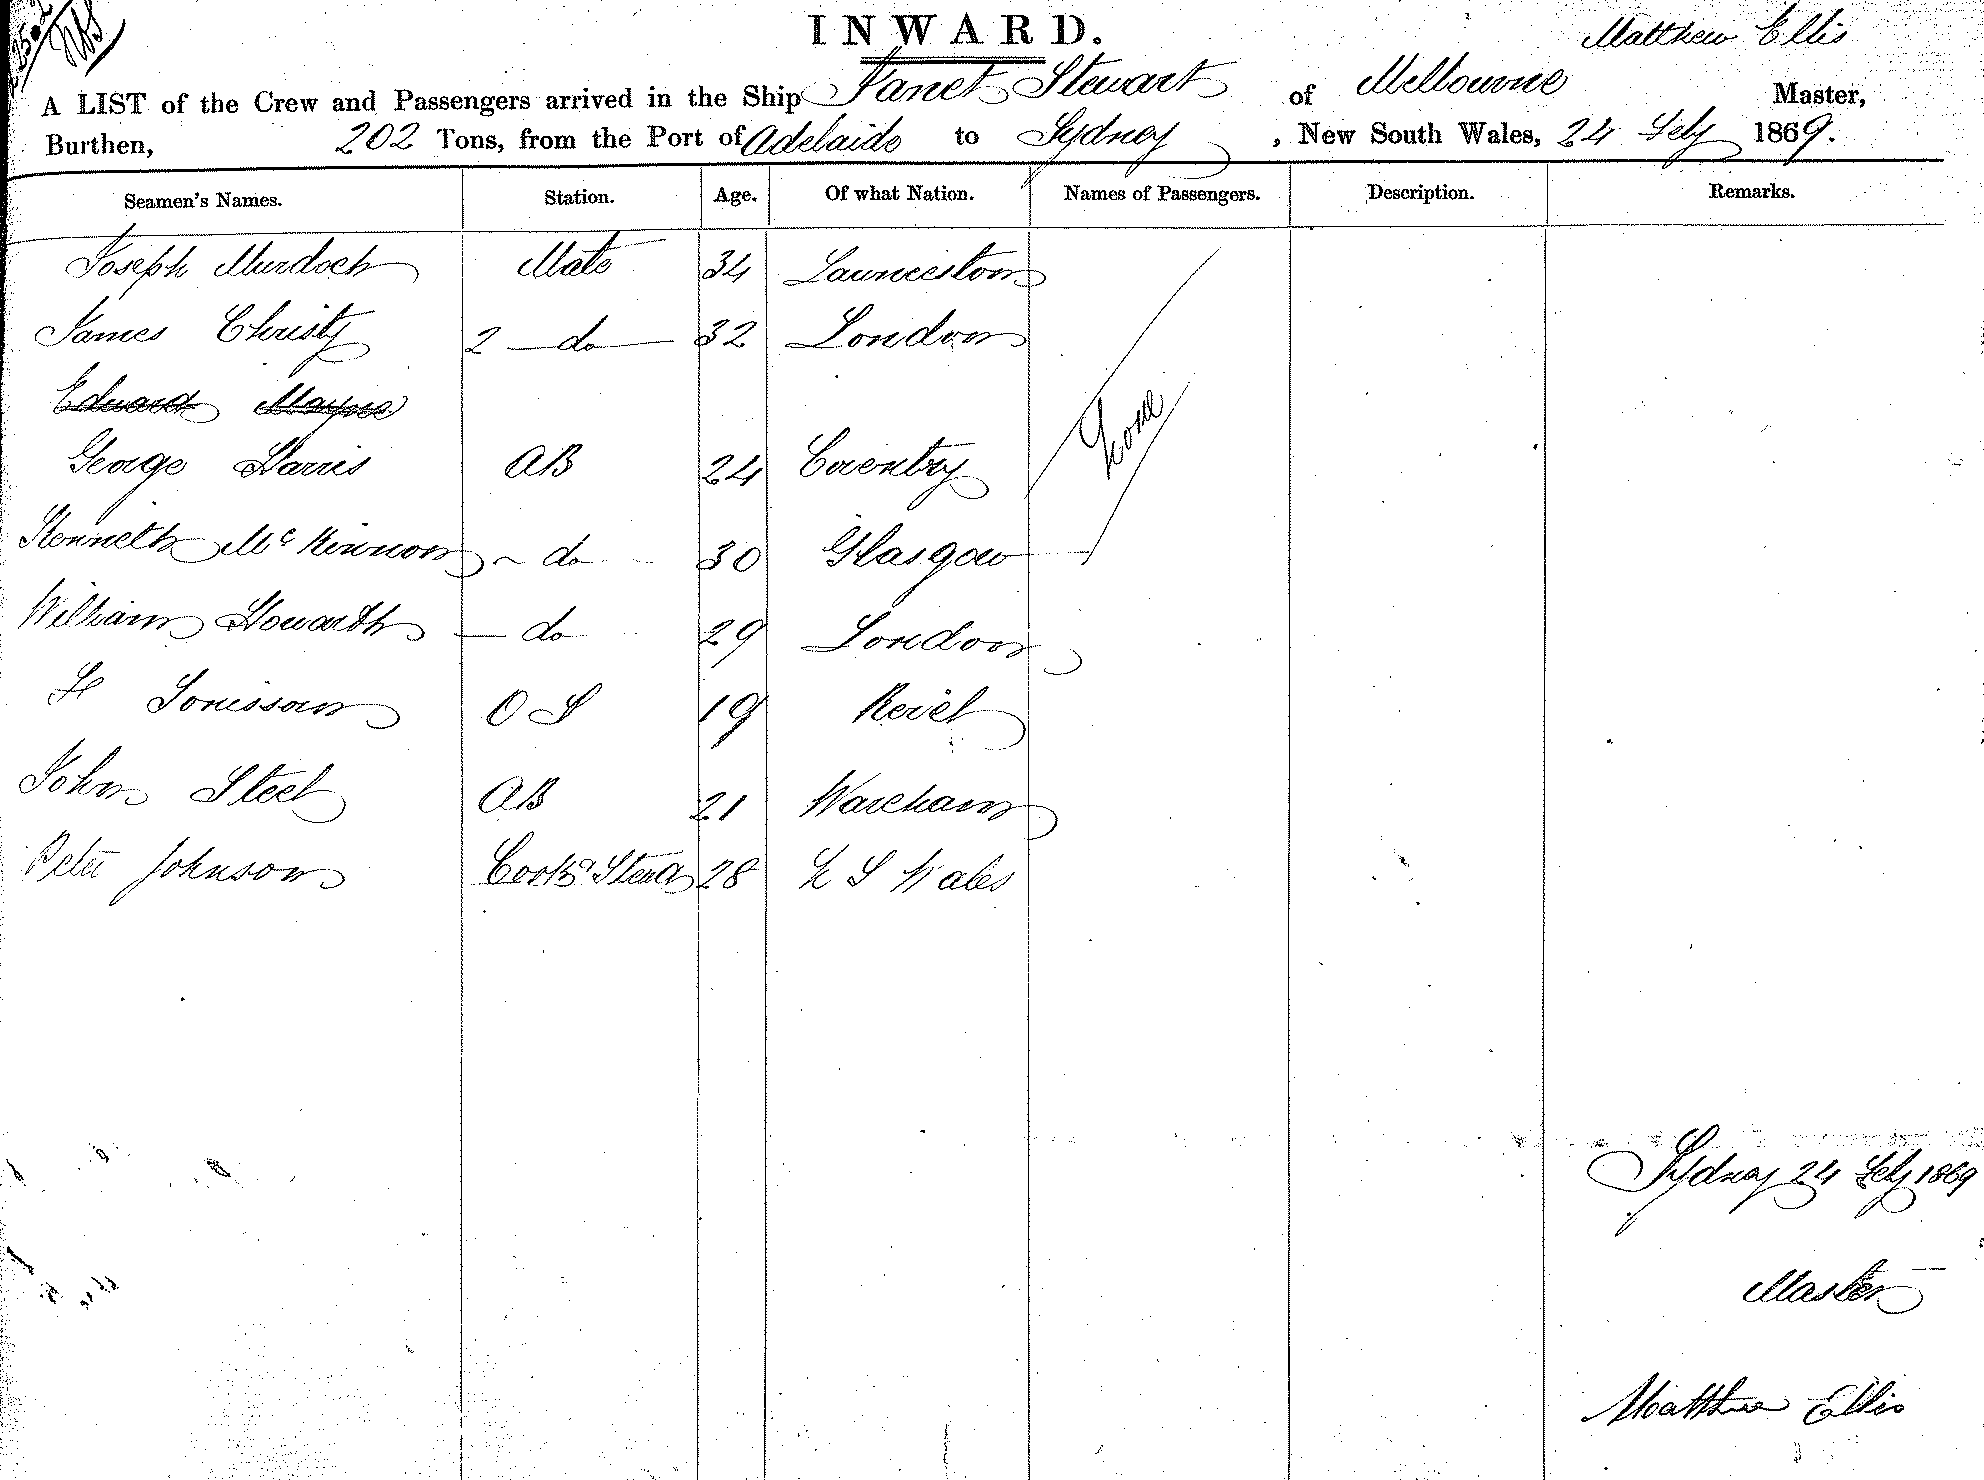 INWARD.
Matthew Ellis
A LIST of the Crew and Passengers arrived in the Ship Janet Stewart of Melbourne Master,
Burthen, 202 Tons, from the Port of Adelaide to Sydney, New South Wales, 24 Feby 1869.
Seamen's Names. Station. Age. Of what Nation. Names of Passengers. Description. Remarks.
Joseph Murdoch Mate 34 Launceston
James Christy 2 do 32 London
Edward Mayne
George Harris AB 24 Coventry
None
Kenneth McKinnon do 30 Glasgow
William Howarth do 29 London
O S 19 Revel
John Steel AB 21 Wareham
Peter Johnson Cook & Stewd 28 N S Wales
Sydney 24 Feby 1869
Master
Matthew Ellis